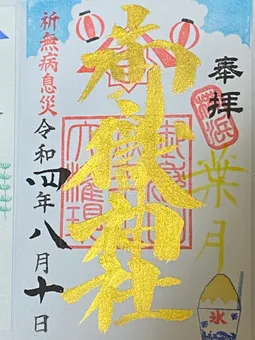 奉拝
葉月
御嶽神社
祈無病息災
令和四年八月十日
氷